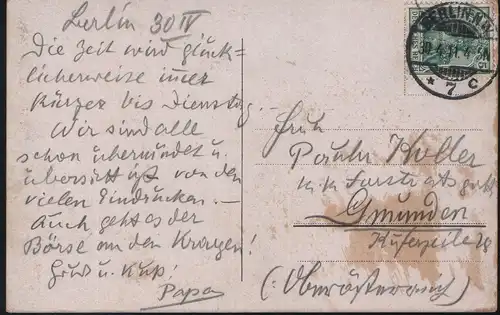 Berlin 30 IV
Die Zeit wird glück-
licherweise immer
kürzer bis Dienstag.
Wir sind alle
schon übermüdet u.
übersättigt von den
vielen Eindrücken. —
Auch geht es der
Börse an den Kragen!
Gruß u. Kuß!
Papa
BERLIN N.W.
30.4.11. 4-5N.
* 7 c
Frln
Koller
k.k.
Gmunden
(: Oberösterreich)